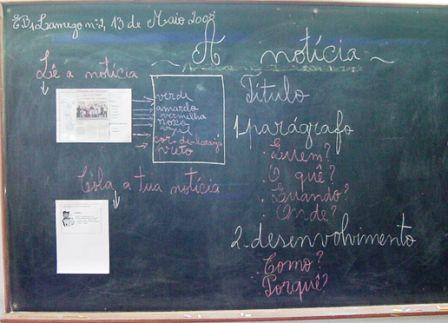 EB1 Lamego nº2, 13 de Maio 2008
A notícia
Lê a notícia
verde
amarelo
vermelho
roxo
azul
cor de laranja
preto
Cola a tua notícia
Título
1. parágrafo
Quem?
O quê?
Quando?
Onde?
2. desenvolvimento
Como?
Porquê?